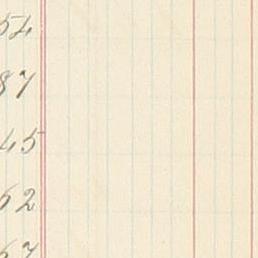 54
87
45
62
67